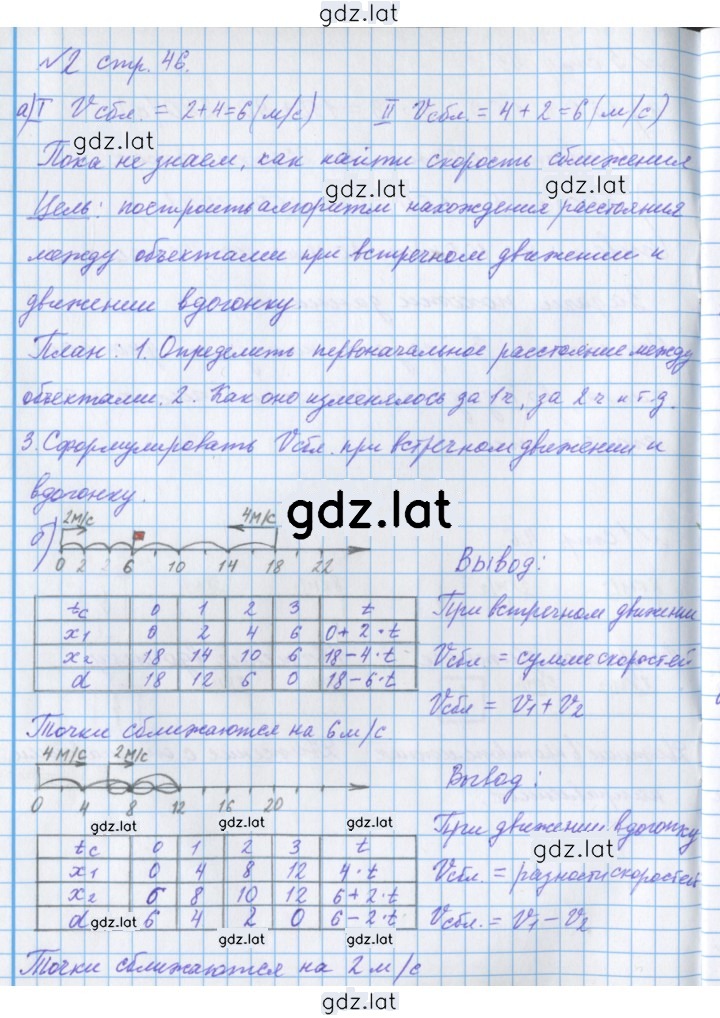 gdz.lat
№2 стр. 46.
а) I Vсбл. = 2+4=6 (м/с) II Vсбл. = 4+2=6 (м/с)
gdz.lat
Пока не знаем, как найти скорость сближения
gdz.lat gdz.lat
Цель: построить алгоритм нахождения расстояния
между объектами при встречном движении и
движении вдогонку
План: 1. Определить первоначальное расстояние между
объектами. 2. Как оно изменялось за 1ч, за 2ч и т.д.
3. Сформулировать Vсбл. при встречном движении и
вдогонку.
gdz.lat
б) 2м/с 4м/с
0 2 2 6 10 14 18 22
Вывод:
tс 0 1 2 3 t
x1 0 2 4 6 0+2·t
x2 18 14 10 6 18-4·t
d 18 12 6 0 18-6·t
При встречном движении
Vсбл. = сумме скоростей
Vсбл = V1+V2
Точки сближаются на 6м/с
4м/с 2м/с
0 4 8 12 16 20
Вывод:
gdz.lat gdz.lat gdz.lat
tс 0 1 2 3 t
x1 0 4 8 12 4·t
x2 6 8 10 12 6+2·t
d 6 4 2 0 6-2·t
gdz.lat gdz.lat gdz.lat
При движении вдогонку
gdz.lat
Vсбл. = разности скоростей
Vсбл. = V1-V2
gdz.lat
Точки сближаются на 2м/с
gdz.lat